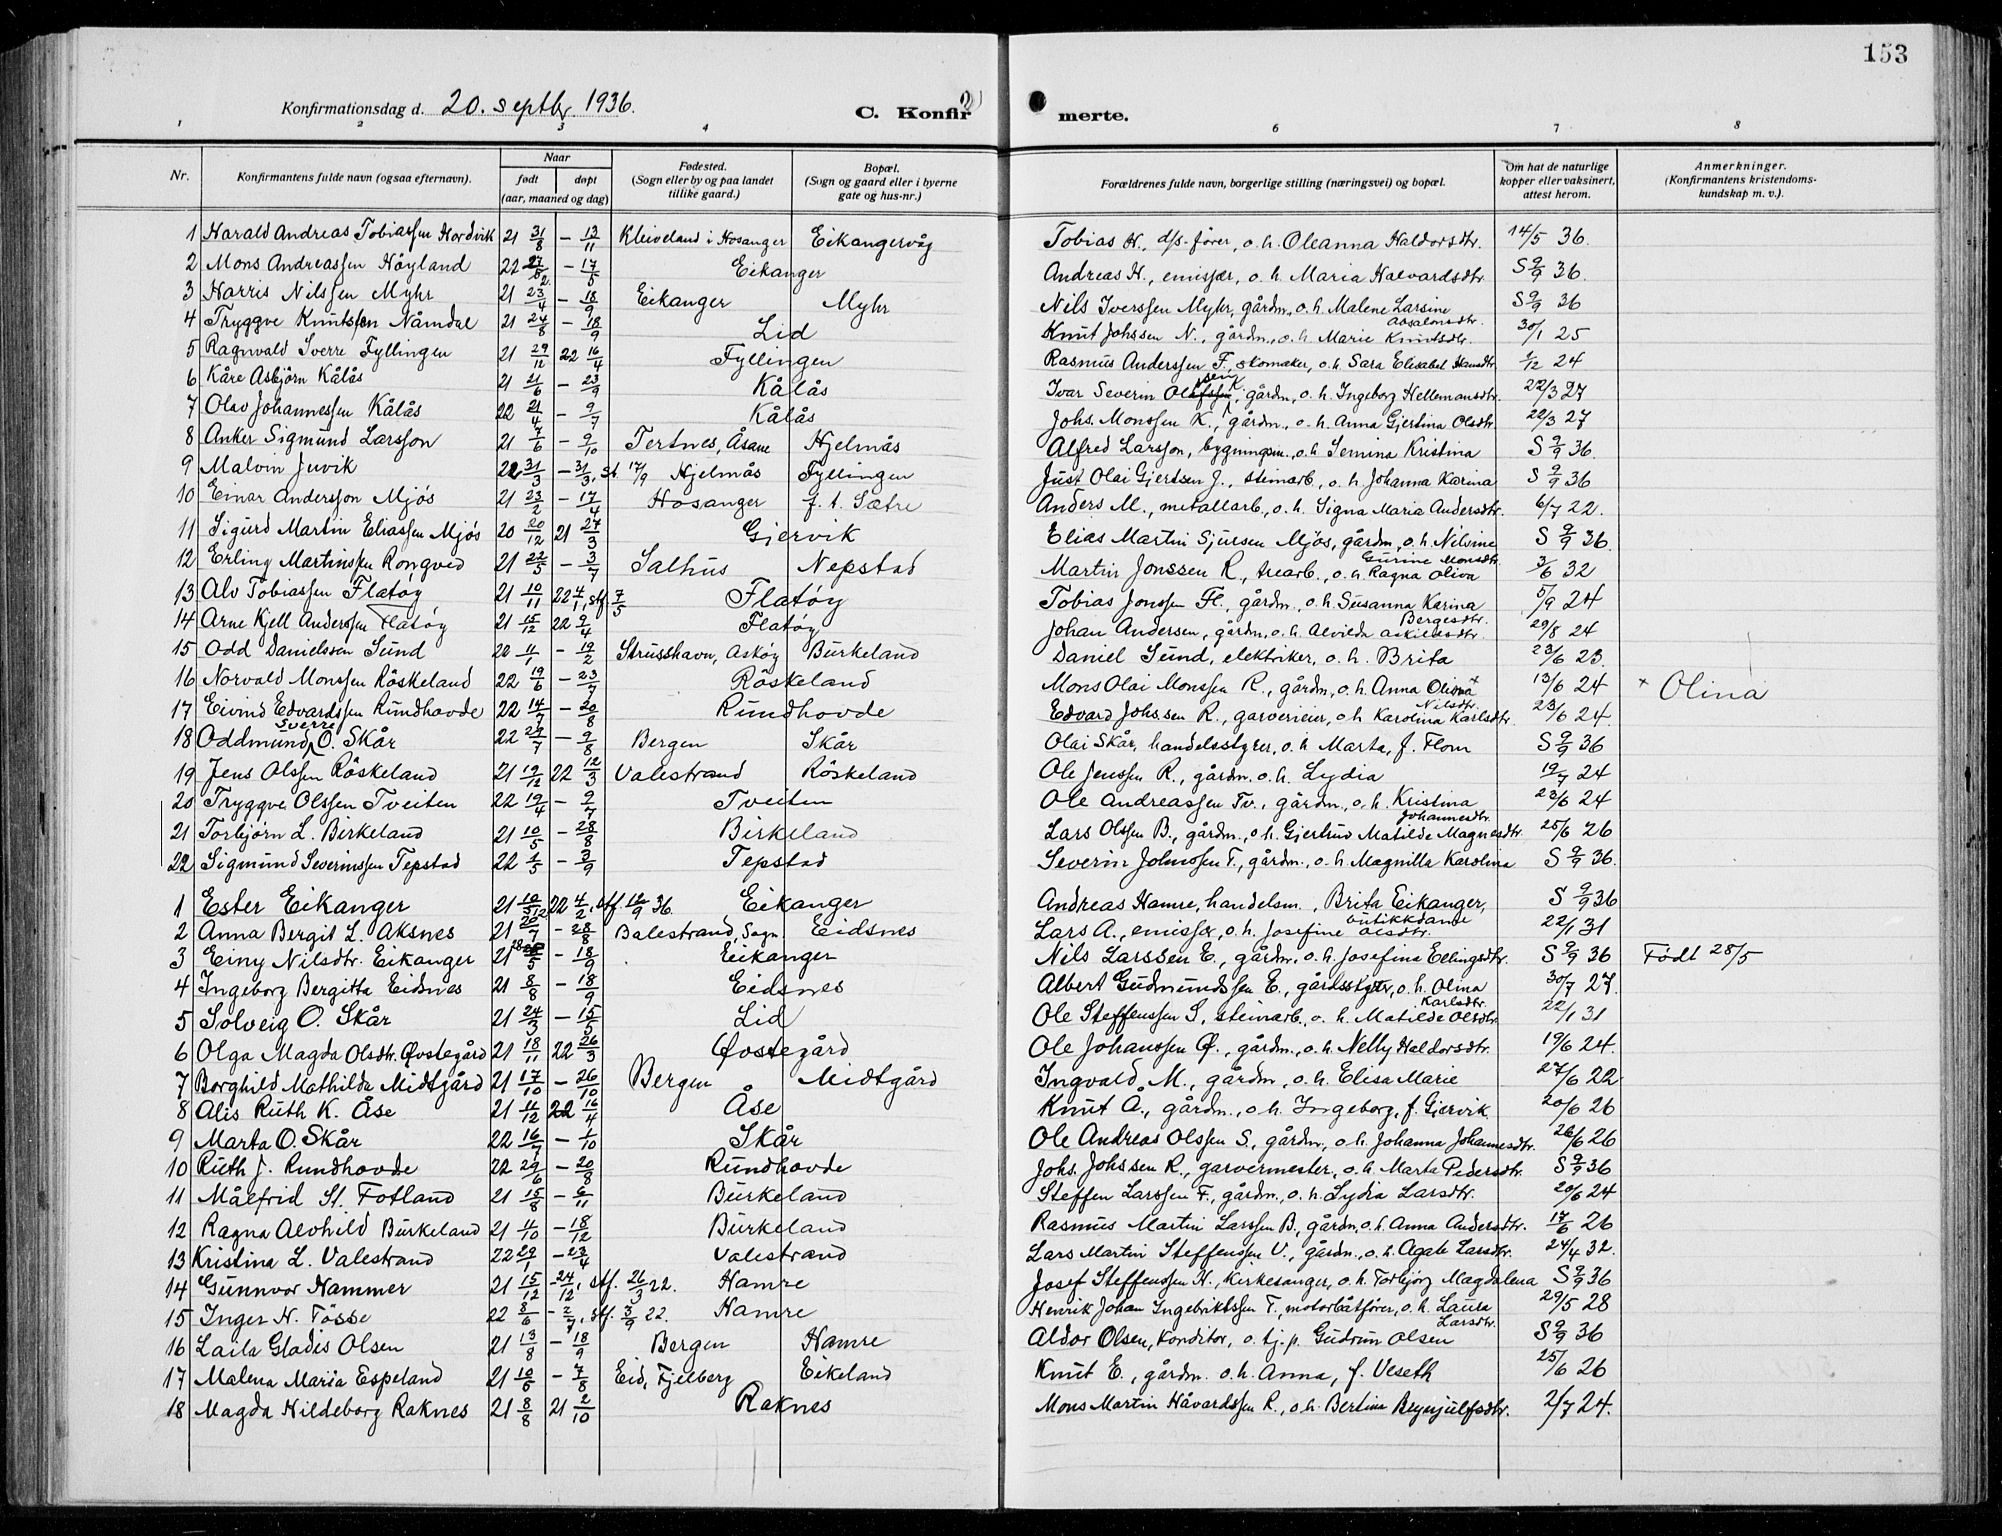 153
Konfirmationsdag d. 20. septbr. 1936. C. Konfirmerte.
1 2 3 4 6 7 8
Nr. Konfirmantens fulde navn (ogsaa efternavn). Naar født døpt (aar, maaned og dag) Fødested. (Sogn eller by og paa landet tillike gaard.) Bopæl. (Sogn og gaard eller i byerne gate og hus-nr.) Forældrenes fulde navn, borgerlige stilling (næringsvei) og bopæl. Om hat de naturlige kopper eller vaksinert, attest herom. Anmerkninger. (Konfirmantens kristendoms-kundskap m. v.).
1 Harald Andreas Tobiassen Hordvik 21 31/8 – 13/11 Kleiveland i Hosanger Eikangervåg Tobias H., d/s-fører, o. h. Oleanna Haldorsdtr. 14/5 36.
2 Mons Andreassen Høyland 22 27/2 – 17/5 Eikanger Andreas H., emissær, o. h. Maria Halvardsdtr. S 9/9 36.
3 Harris Nilssen Myhr 21 23/4 – 18/9 Eikanger Myhr Nils Iverssen Myhr, gårdm., o. h. Malene Larsine Absalonsdtr. S 9/9 36
4 Tryggve Knutssen Nåmdal 21 24/8 – 18/9 Lid Knut Johssen N., gårdm., o. h. Marie Knutsdtr. 30/1 25
5 Ragnvald Sverre Fyllingen 21 29/12 22 16/4 Fyllingen Rasmus Anderssen F., skomaker, o. h. Sara Elisabet Hansdtr. 1/12 24
6 Kåre Asbjörn Kålås 21 21/6 – 23/9 Kålås Ivar Severin Olssen K., gårdm., o. h. Ingeborg Hellemansdtr. 22/3 27
7 Olav Johannessen Kålås 22 21/4 – 9/7 Kålås Johs. Monssen K., gårdm., o. h. Anna Gjertina Olsdtr. 22/3 27
8 Anker Sigmund Larsson 21 7/6 – 9/10 Tertnes, Åsane Hjelmås Alfred Larsson, bygningsm., o. h. Semina Kristina S 9/9 36.
9 Malvin Juvik 22 31/3 – 31/3, st. 17/9 Hjelmås Fyllingen Just Olai Gjertsen J., steinarb., o. h. Johanna Karina S 9/9 36
10 Einar Andersson Mjös 21 23/2 – 17/4 Hosanger f. t. Sætre Anders M., metallarb., o. h. Signa Maria Andersdtr. 6/7 22.
11 Sigurd Martin Eliassen Mjös 20 20/12 21 27/3 Gjervik Elias Martin Sjursen Mjös, gårdm., o. h. Nilsine Gurine Monsdtr. S 9/9 36.
12 Erling Martinssen Rongved 21 22/5 – 3/7 Salhus Nepstad Martin Jonssen R., trearb., o. h. Ragna Oliva 3/6 32
13 Alv Tobiassen Flatöy 21 10/11 22 4/1, stf. 7/5 Flatöy Tobias Jonssen Fl., gårdm., o. h. Susanna Karina Bergesdtr. 5/9 24
14 Arne Kjell Anderssen Flatöy 21 15/12 22 9/4 Flatöy Johan Andersen, gårdm., o. h. Alvilda Askildsdtr. 29/8 24
15 Odd Danielssen Sund 22 11/1 – 19/2 Strusshavn, Asköy Burkeland Daniel Sund, elektriker, o. h. Brita 23/6 23.
16 Norvald Monssen Röskeland 22 19/6 – 23/7 Röskeland Mons Olai Monssen R., gårdm., o. h. Anna Olina + Nilsdtr. 13/6 24 + Olina
17 Eivind Edvardssen Rundhovde 22 14/7 – 20/8 Rundhovde Edvard Johs.sen R., garverieier, o. h. Karolina Karlsdtr. 23/6 24.
18 Oddmund Sverre O. Skår 22 27/7 – 9/8 Bergen Skår Olai Skår, handelsstyrer, o. h. Marta, f. Flom S 9/9 36
19 Jens Olssen Röskeland 21 19/12 22 12/3 Valestrand Röskeland Ole Jenssen R., gårdm. o. h. Lydia 19/7 24
20 Tryggve Olssen Tveiten 22 19/4 – 9/7 Tveiten Ole Andreassen Tv., gårdm., o. h. Kristina Johannesdtr. 23/6 24
21 Torbjørn L. Birkeland 21 10/5 – 28/8 Birkeland Lars Olssen B., gårdm., o. h. Gjertrud Matilde Magnesdtr. 25/6 26
22 Sigmund Severinssen Tepstad 22 1/5 – 3/9 Tepstad Severin Johnssen T., gårdm., o. h. Magnilla Karolina S 9/9 36.
1 Ester Eikanger 21 10/12 22 4/2, stf. 12/9 36. Eikanger Andreas Hamre, handelsm., Brita Eikanger, butikkdame S 9/9 36
2 Anna Bergit L. Aksnes 21 20/7 – 28/8 Balestrand, Sogn Eidsnes Lars A., emissær, o. h. Josefine Olsdtr. 22/1 31
3 Einy Nilsdtr. Eikanger 21 28/5 – 18/9 Eikanger Nils Larssen E., gårdm., o. h. Josefina Ellingsdtr. S 9/9 36 Født 28/5
4 Ingeborg Bergitta Eidsnes 21 8/8 – 18/9 Eidsnes Albert Gudmundssen E., gårdsstyrer, o. h. Olina Karlsdtr. 30/7 27.
5 Solveig O. Skår 21 24/3 – 15/5 Lid Ole Steffenssen S., steinarb., o. h. Matilde Olsdtr. 22/1 31
6 Olga Magda Olsdtr. Øvstegård 21 18/11 22 26/3 Øvstegård Ole Johanssen Ø., gårdm., o. h. Nelly Haldorsdtr. 19/6 24.
7 Borghild Mathilda Midtgård 21 17/10 – 26/10 Bergen Midtgård Ingvald M., gårdm., o. h. Elisa Marie 27/6 22
8 Alis Ruth K. Åse 21 11/12 22 16/4 Åse Knut Å., gårdm., o. h. Ingeborg, f. Gjervik. 20/6 26
9 Marta O. Skår 22 16/7 – 1/10 Skår Ole Andreas Olssen S., gårdm., o. h. Johanna Johannesdtr. 26/6 26
10 Ruth J. Rundhovde 22 29/6 – 20/8 Rundhovde Johs. Johssen R., garvermester, o. h. Marta Pedersdtr. S 9/9 36
11 Målfrid St. Fotland 21 15/8 – 6/11 Burkeland Steffen Larssen F., gårdm., o. h. Lydia Larsdtr. 20/6 24
12 Ragna Alvhild Burkeland 21 11/10 – 18/12 Burkeland Rasmus Martin Larssen B., gårdm., o. h. Anna Andersdtr. 17/6 26
13 Kristina L. Valestrand 22 29/1 – 23/4 Valestrand Lars Martin Steffenssen V., gårdm., o. h. Agate Larsdtr. 24/4 32.
14 Gunnvor Hammer 21 15/12 – 24/12, stf. 26/3 22. Hamre Josef Steffenssen H., kirkesanger, o. h. Torbjörg Magdalena S 9/9 36
15 Inger H. Tösse 22 8/6 – 2/7, stf. 3/9 22. Hamre Henrik Johan Ingebriktssen T., motorbåtfører, o. h. Laura Larsdtr. 29/5 28
16 Laila Gladis Olsen 21 13/8 – 18/9 Bergen Hamre Aldor Olsen, konditor, o. tj. p. Gudrun Olsen S 9/9 36
17 Malena Maria Espeland 21 10/6 – 7/8 Eid, Fjelberg Eikeland Knut E., gårdm. o. h. Anna, f. Veseth 25/6 26
18 Magda Hildeborg Raknes 21 8/8 21 2/10 Raknes Mons Martin Håvardssen R., o. h. Bertine Brynjulfsdtr. 2/7 24.